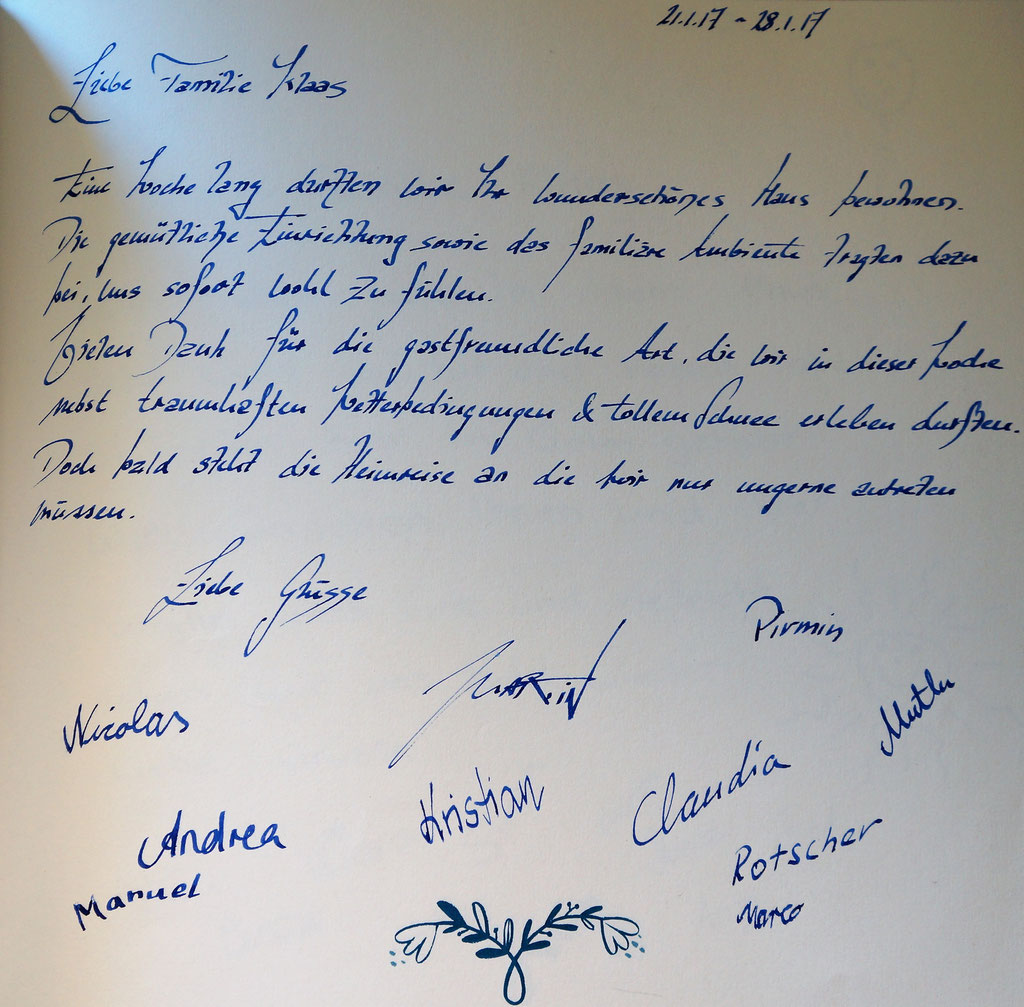 21.1.17 - 28.1.17
Liebe Familie Klaas
Eine Woche lang durften wir Ihr wunderschönes Haus bewohnen.
Die gemütliche Einrichtung sowie das familiäre Ambiente tragten dazu
bei, uns sofort wohl zu fühlen.
Vielen Dank für die gastfreundliche Art, die wir in dieser Woche
nebst traumhaften Wetterbedingungen & tollem Schnee erleben durften.
Doch bald steht die Heimreise an die wir nur ungerne antreten
müssen.
Liebe Grüsse
Pirmin
Martin
Mutlu
Nicolas
Claudia
Kristian
Andrea
Rotscher
Manuel
Marco